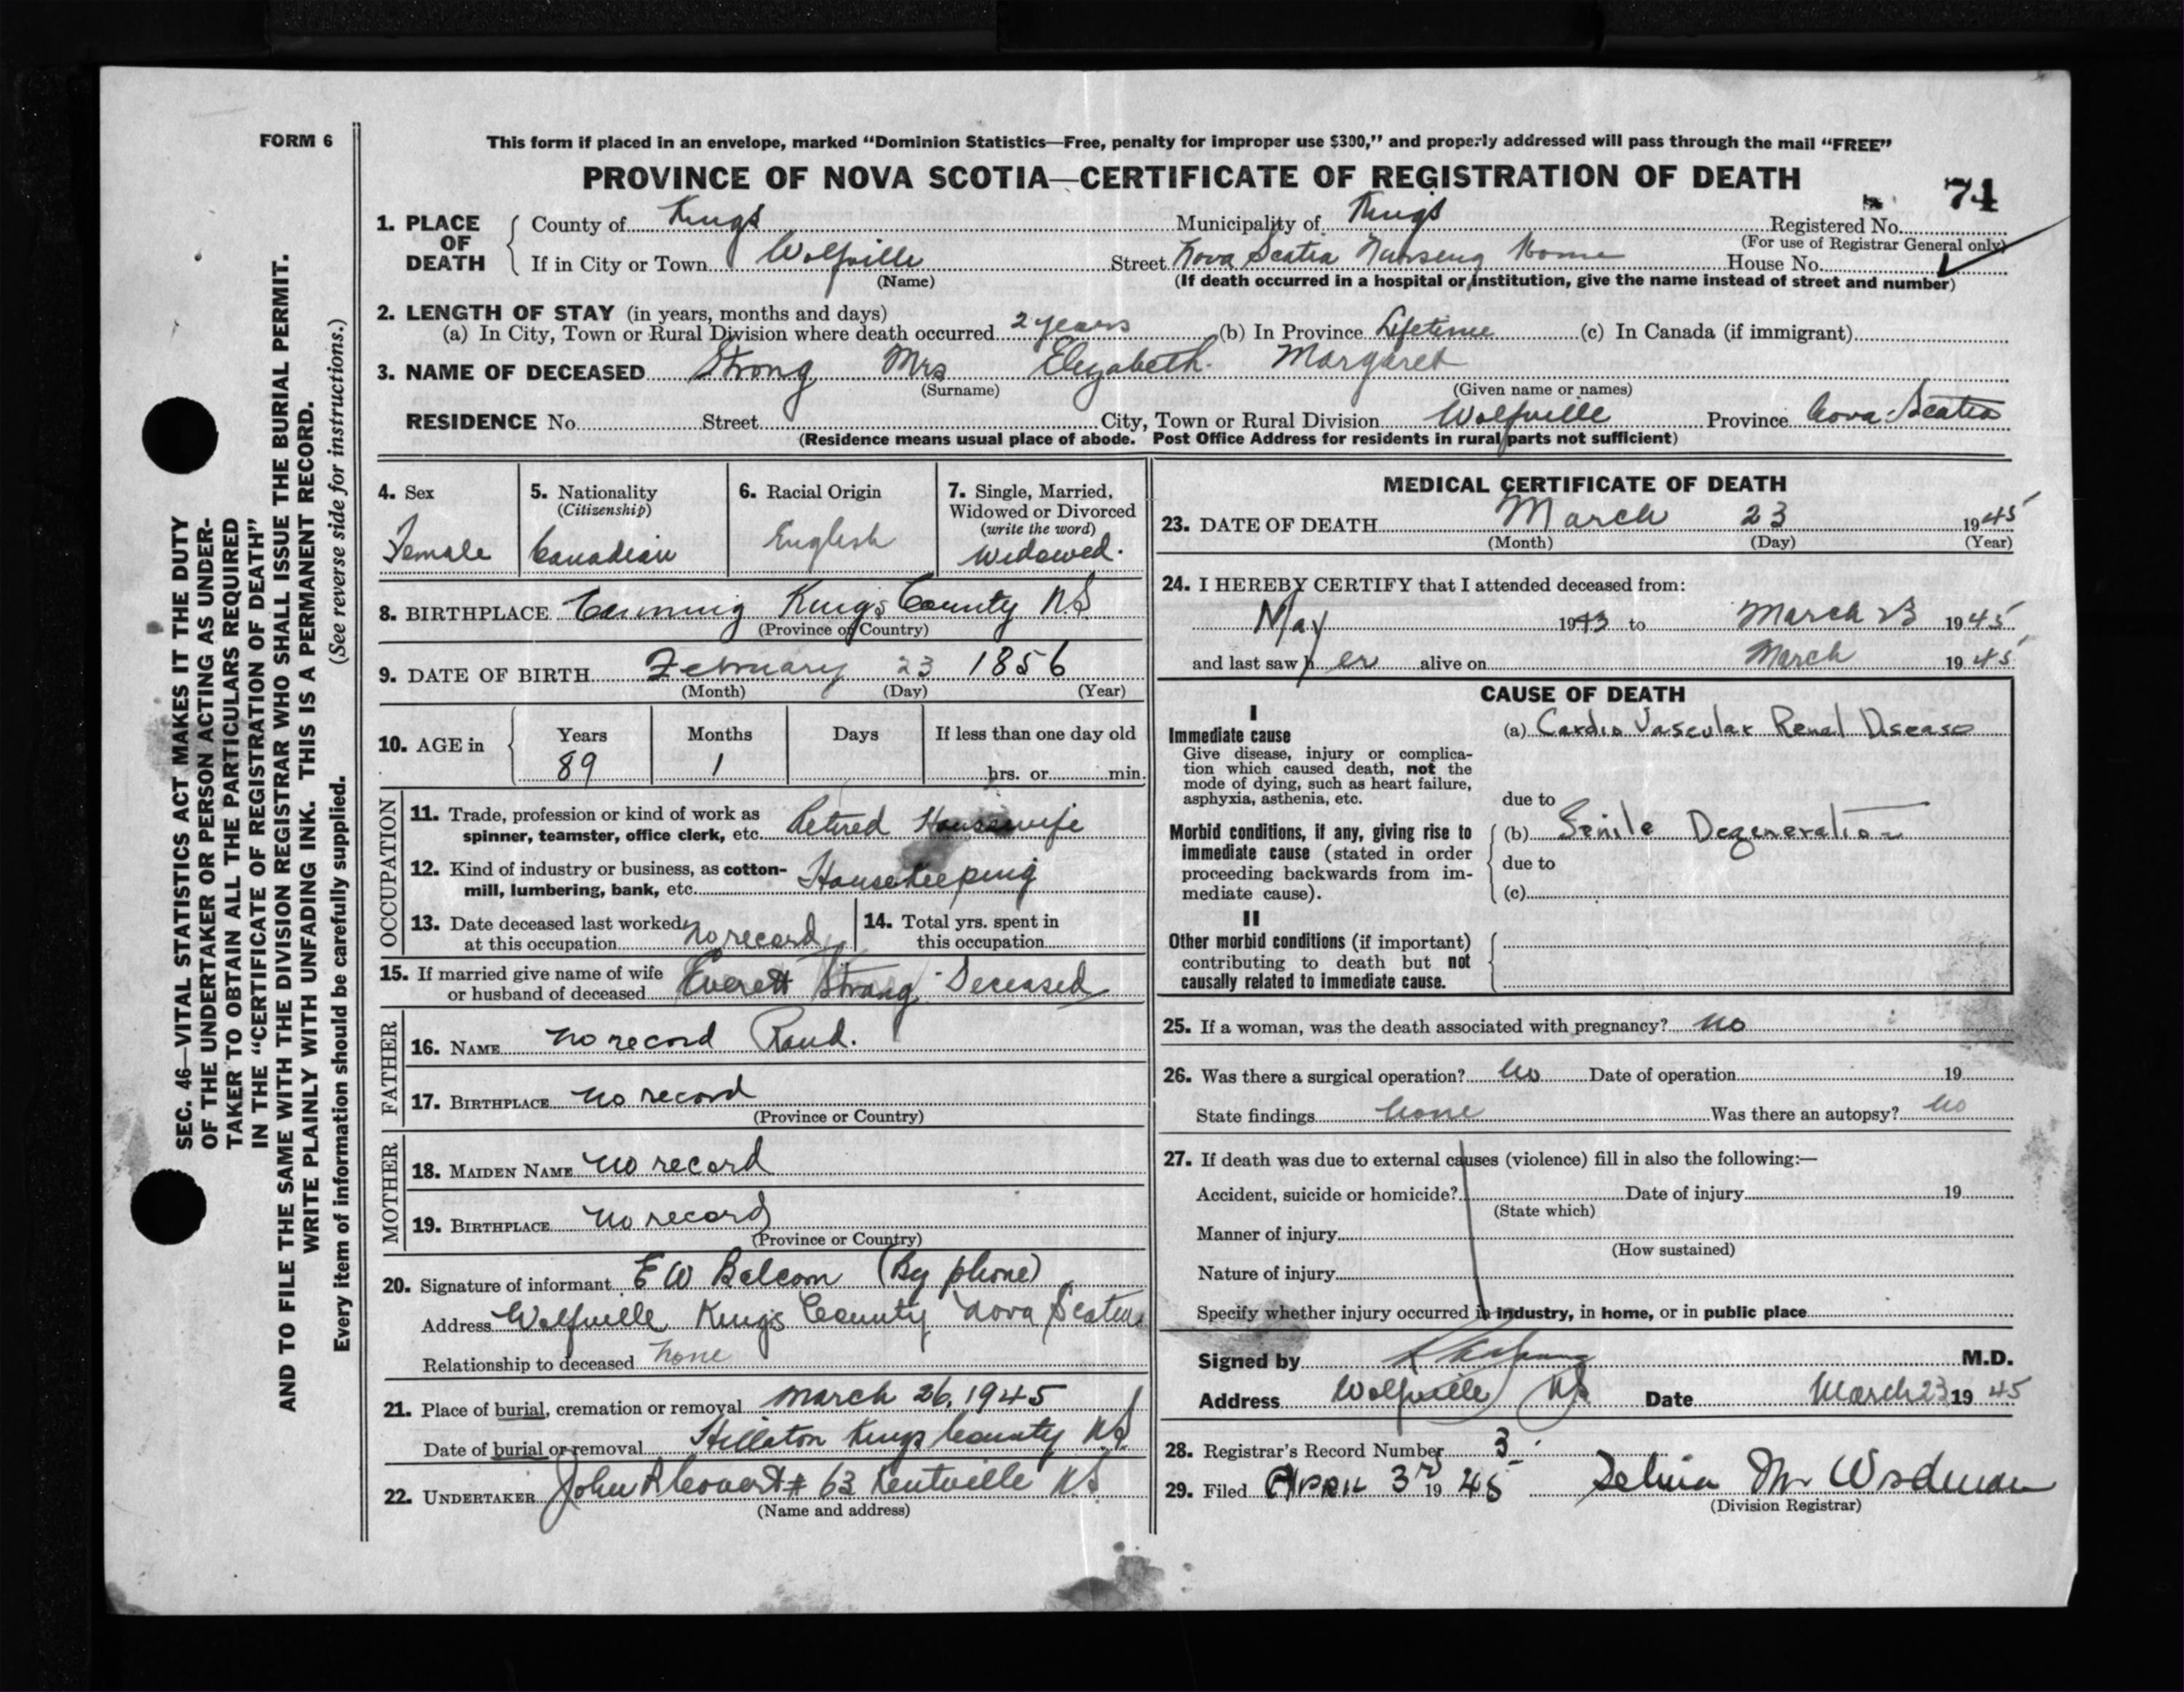 FORM 6
This form if placed in an envelope, marked “Dominion Statistics—Free, penalty for improper use $300,” and properly addressed will pass through the mail “FREE”
PROVINCE OF NOVA SCOTIA—CERTIFICATE OF REGISTRATION OF DEATH
74
1. PLACE OF DEATH
County of Kings Municipality of Kings Registered No.
(For use of Registrar General only)
If in City or Town Wolfville Street Nova Scotia Nursing Home House No.
(Name) (If death occurred in a hospital or institution, give the name instead of street and number)
2. LENGTH OF STAY (in years, months and days)
(a) In City, Town or Rural Division where death occurred 2 years (b) In Province Lifetime (c) In Canada (if immigrant)
3. NAME OF DECEASED Strong Mrs Elizabeth Margaret
(Surname) (Given name or names)
RESIDENCE No. Street City, Town or Rural Division Wolfville Province Nova Scotia
(Residence means usual place of abode. Post Office Address for residents in rural parts not sufficient)
4. Sex
Female
5. Nationality
(Citizenship)
Canadian
6. Racial Origin
English
7. Single, Married,
Widowed or Divorced
(write the word)
Widowed.
8. BIRTHPLACE Canning Kings County N.S
(Province or Country)
9. DATE OF BIRTH February 23 1856
(Month) (Day) (Year)
10. AGE in
Years Months Days If less than one day old
89 1 hrs. or min.
OCCUPATION
11. Trade, profession or kind of work as
spinner, teamster, office clerk, etc. Retired Housewife
12. Kind of industry or business, as cotton-
mill, lumbering, bank, etc. Housekeeping
13. Date deceased last worked
at this occupation no record
14. Total yrs. spent in
this occupation
15. If married give name of wife
or husband of deceased Everett Strong - Deceased
FATHER
16. NAME no record Rand.
17. BIRTHPLACE no record
(Province or Country)
MOTHER
18. MAIDEN NAME no record
19. BIRTHPLACE no record
(Province or Country)
20. Signature of informant E W Balcom (By phone)
Address Wolfville Kings County Nova Scotia
Relationship to deceased none
21. Place of burial, cremation or removal March 26, 1945
Date of burial or removal Hillaton Kings County N.S.
22. UNDERTAKER John R Covert # 63 Kentville N.S.
(Name and address)
MEDICAL CERTIFICATE OF DEATH
23. DATE OF DEATH March 23 1945
(Month) (Day) (Year)
24. I HEREBY CERTIFY that I attended deceased from:
May 1943 to March 23 1945
and last saw h er alive on March 1945
CAUSE OF DEATH
I
Immediate cause
Give disease, injury or complica-
tion which caused death, not the
mode of dying, such as heart failure,
asphyxia, asthenia, etc.
(a) Cardio Vascular Renal Disease
due to
Morbid conditions, if any, giving rise to
immediate cause (stated in order
proceeding backwards from im-
mediate cause).
(b) Senile Degeneration
due to
(c)
II
Other morbid conditions (if important)
contributing to death but not
causally related to immediate cause.
25. If a woman, was the death associated with pregnancy? no
26. Was there a surgical operation? No Date of operation 19
State findings None Was there an autopsy? No
27. If death was due to external causes (violence) fill in also the following:—
Accident, suicide or homicide? Date of injury 19
(State which)
Manner of injury
(How sustained)
Nature of injury
Specify whether injury occurred in industry, in home, or in public place
Signed by M.D.
Address Wolfville N.S. Date March 23 1945
28. Registrar's Record Number 3
29. Filed April 3rd 1945 M Woodman
(Division Registrar)
SEC. 46—VITAL STATISTICS ACT MAKES IT THE DUTY
OF THE UNDERTAKER OR PERSON ACTING AS UNDER-
TAKER TO OBTAIN ALL THE PARTICULARS REQUIRED
IN THE “CERTIFICATE OF REGISTRATION OF DEATH”
AND TO FILE THE SAME WITH THE DIVISION REGISTRAR WHO SHALL ISSUE THE BURIAL PERMIT.
WRITE PLAINLY WITH UNFADING INK. THIS IS A PERMANENT RECORD.
Every item of information should be carefully supplied. (See reverse side for instructions.)